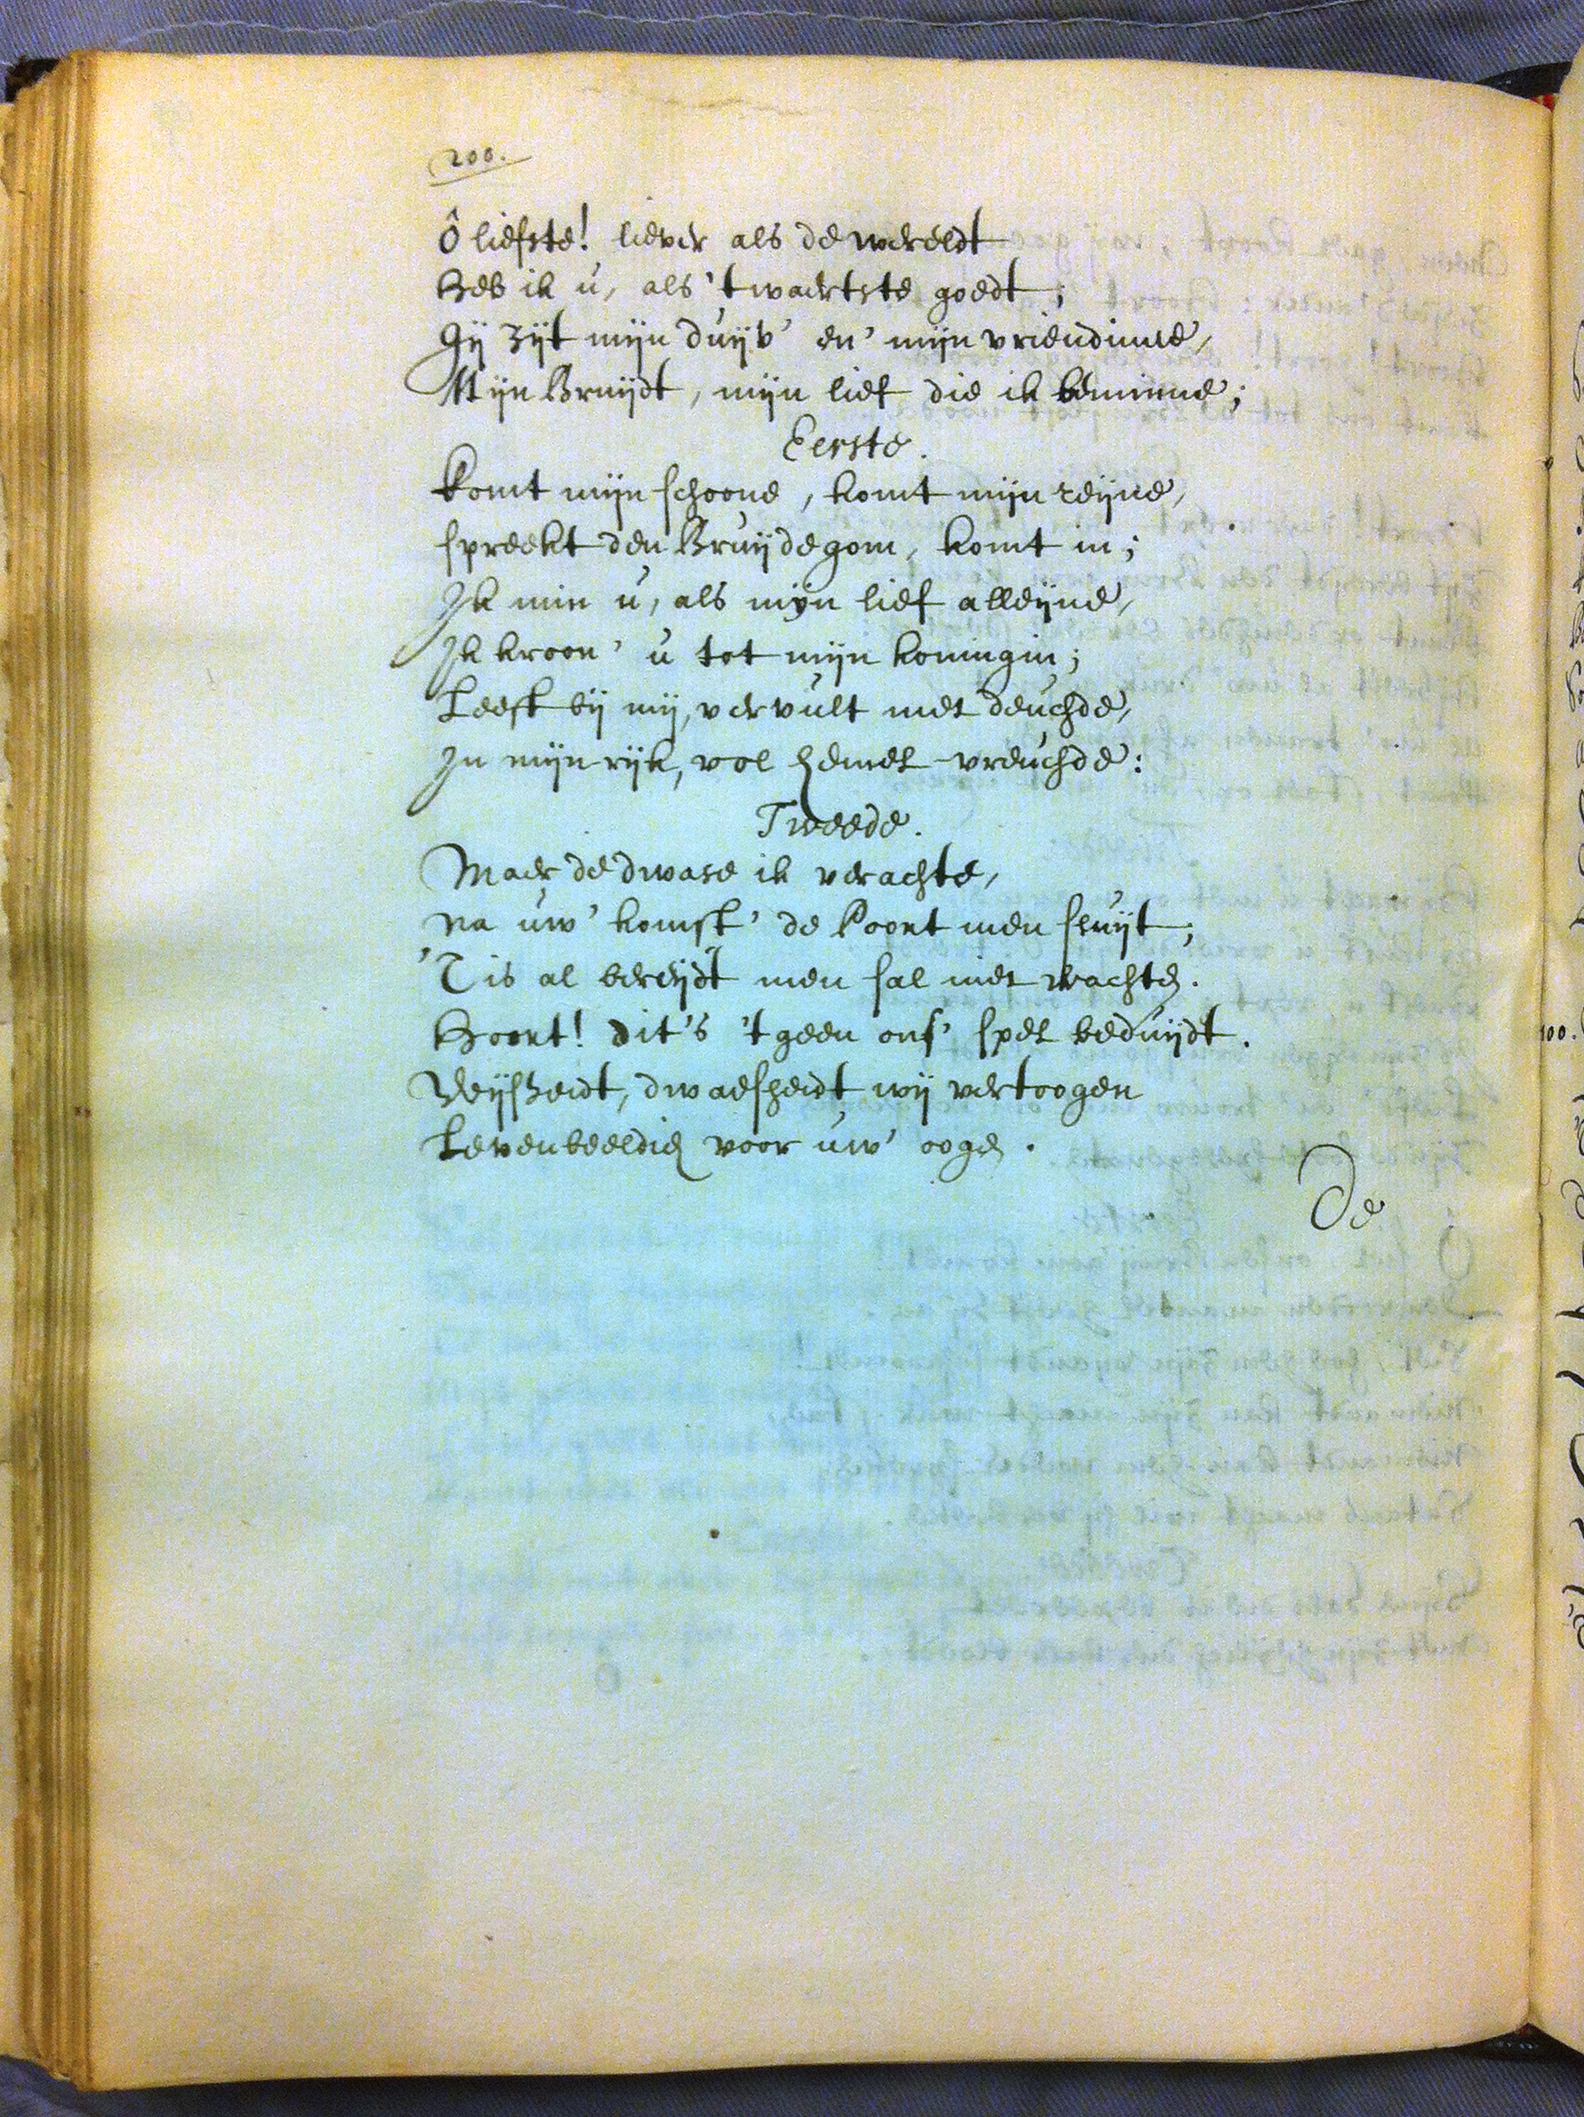 200.
Ô liefste! liever als de wereldt
Heb ik u, als 't waertste goedt;
Gij zijt mijn duijv' en' mijn vriendinne,
Mijn Bruijdt, mijn lief die ik beminne;
Eerste.
Komt mijn schoone, komt mijn reijne,
spreekt den Bruijdegom, komt in;
Ik min u, als mijn lief alleijne,
Ik kroon' u tot mijn koningin;
Leeft bij mij, vervult met deuchde,
In mijn rijk, vol hemel-vreuchde:
Tweede.
Maer de dwase ik verachte,
na uw' komst' de Poort men sluijt;
'T is al bereijdt men sal niet wachten.
Hoort! dit's 't geen ons' spel beduijdt.
Weijsheidt, dwaesheidt wij vertoogen
Levenbeeldig voor uw' oogen.
De